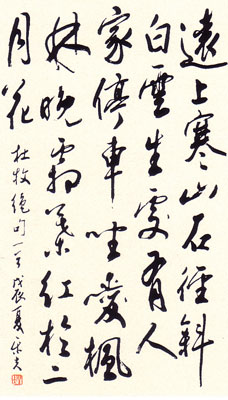 遠上寒山石徑斜
白雲生處有人
家停車坐愛楓
林晚霜葉紅於二
月花 杜牧絕句一首 戊辰夏